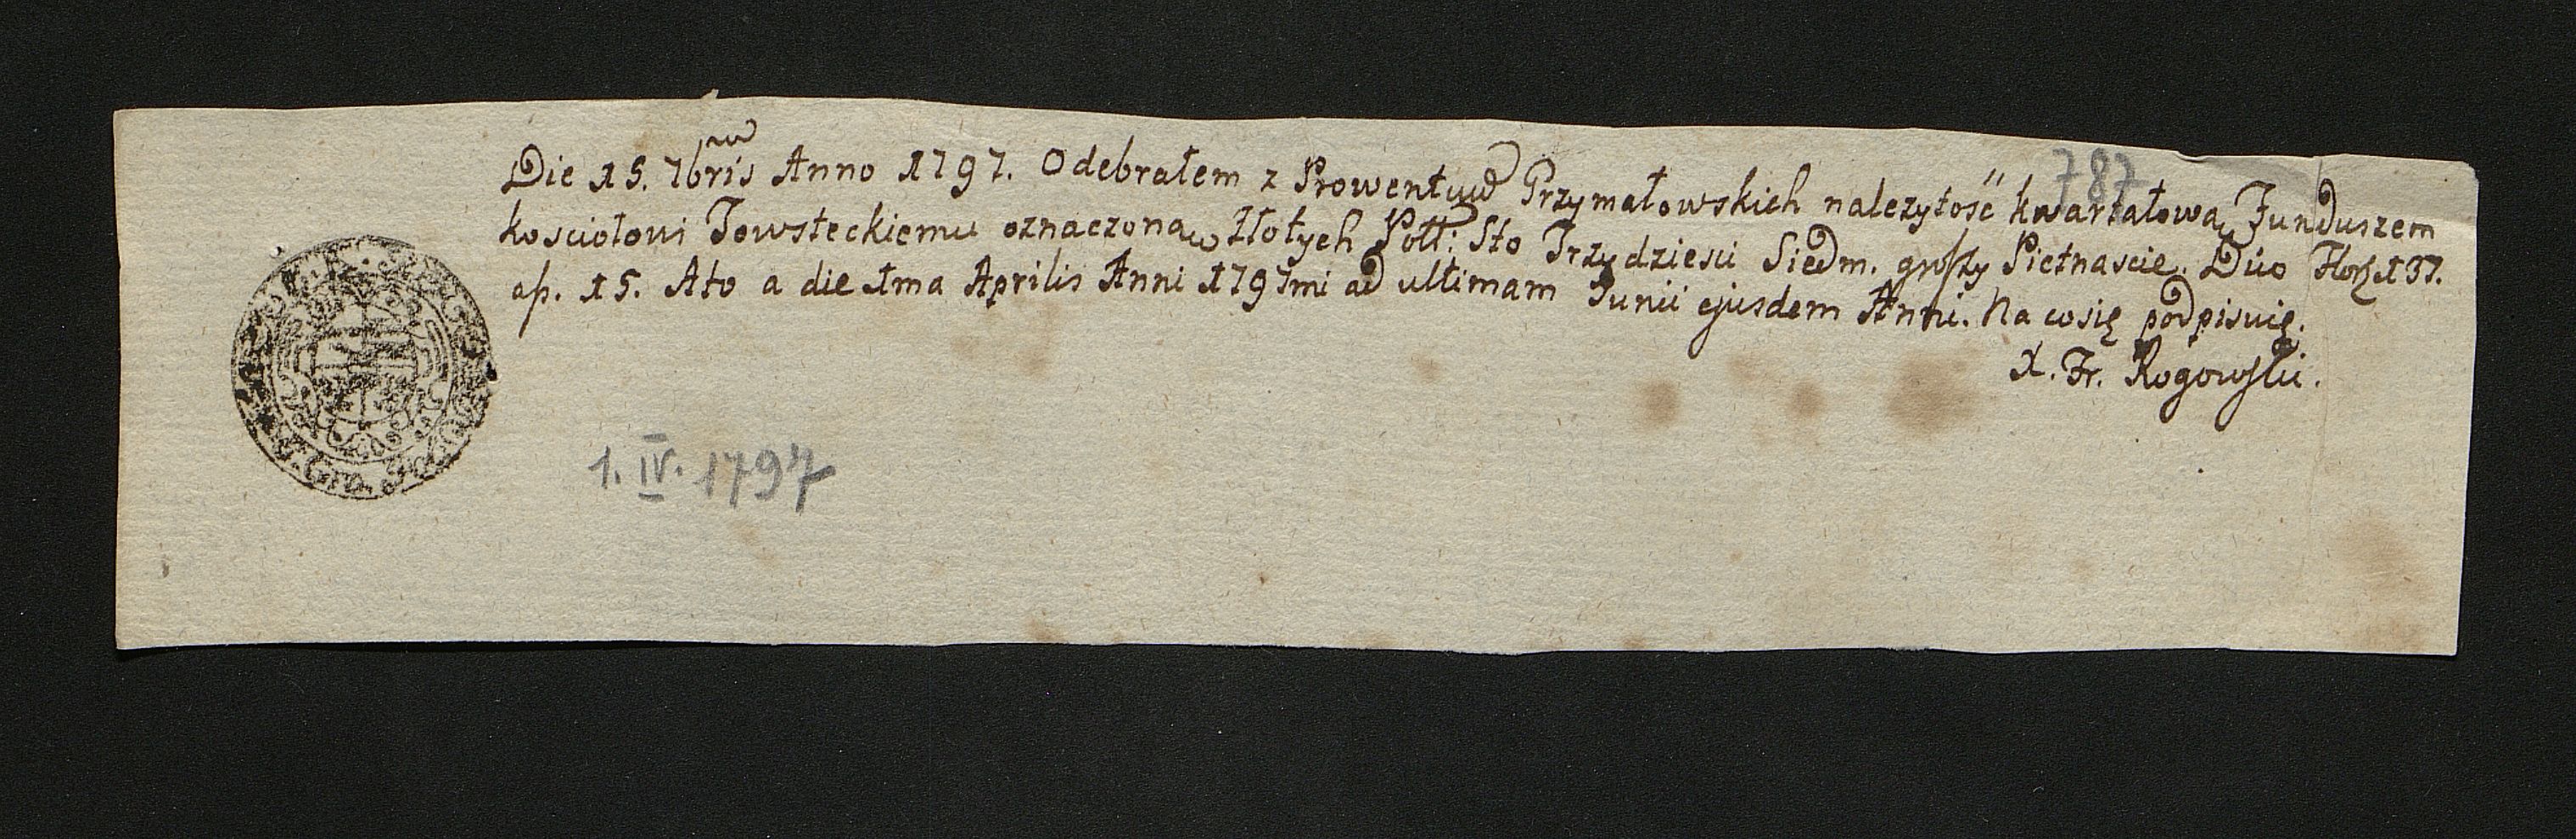 787
Die 15. 7bris Anno 1797. Odebrałem z Prowentuw Przymałowskich nalezytość kwartałową Funduszem
kosciołowi Towsteckiemu oznaczoną w Złotych Poll: Sto Trzydziesci Siedm. groszy Pietnascie. Dico Flor 137.
gß. 15. A to a die 1ma Aprilis Anni 1797mi ad ultimam Junii ejusdem Anni. Na co się podpisuię.
X. Fr. Rogowski.
1. IV. 1797